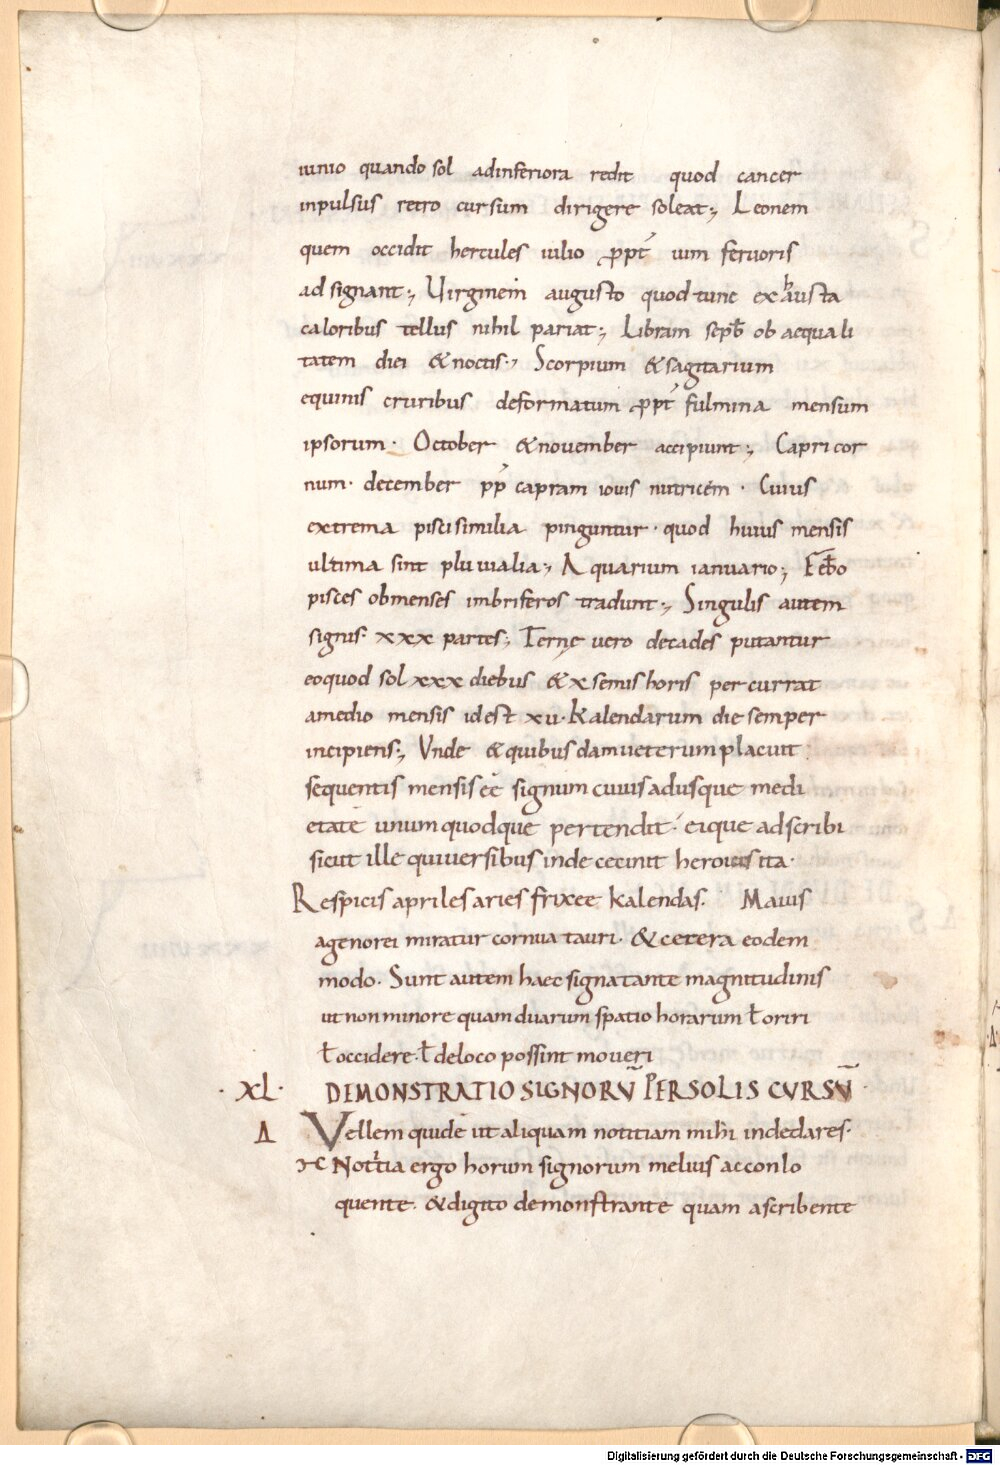 iunio quando sol adinferiora redit quod cancer
inpulsus retro cursum dirigere soleat; Leonem
quem occidit hercules iulio ꝓpt̄ uim feruoris
adsignant; Uirginem augusto quod tunc exhausta
caloribus tellus nihil pariat; Libram sepƀ ob aequali
tatem diei & noctis; Scorpium & sagitarium
equinis cruribus deformatum ꝓpt̄ fulmina mensum
ipsorum· October & nouember accipiunt; Capricor
num· december pp̄ capram iouis nutricem· Cuius
extrema piscisimilia pinguntur· quod huius mensis
ultima sint pluuialia; Aquarium ianuario; Febo
pisces obmenses imbriferos tradunt; Singulis autem
signis· xxx partes; Terne vero decades putantur
eoquod sol xxx diebus & x semis horis percurrat
amedio mensis id est xu· Kalendarum die semper
incipiens; Vnde & quibusdam ueterum placuit
sequentis mensis eē signum cuius adusque medi
etatē unumquodque pertendit· eique adscribi
sicut ille qui uersibus inde cecinit herouis ita·
Respicis apriles aries frixee kalendas. Maius
agenorei miratur cornua tauri· & cetera eodem
modo· Sunt autem haec signa tante magnitudinis
ut non minore quam duarum spatio horarum ł oriri
ł occidere· ł deloco possint moueri
· XL· DEMONSTRATIO SIGNORŪ PER SOLIS CVRSŪ·
Δ Vellem quidē ut aliquam notitiam mihi inde dares·
Notitia ergo horum signorum melius acconlo
quente· & digito demonstrante quam ascribente
Digitalisierung gefördert durch die Deutsche Forschungsgemeinschaft - DFG